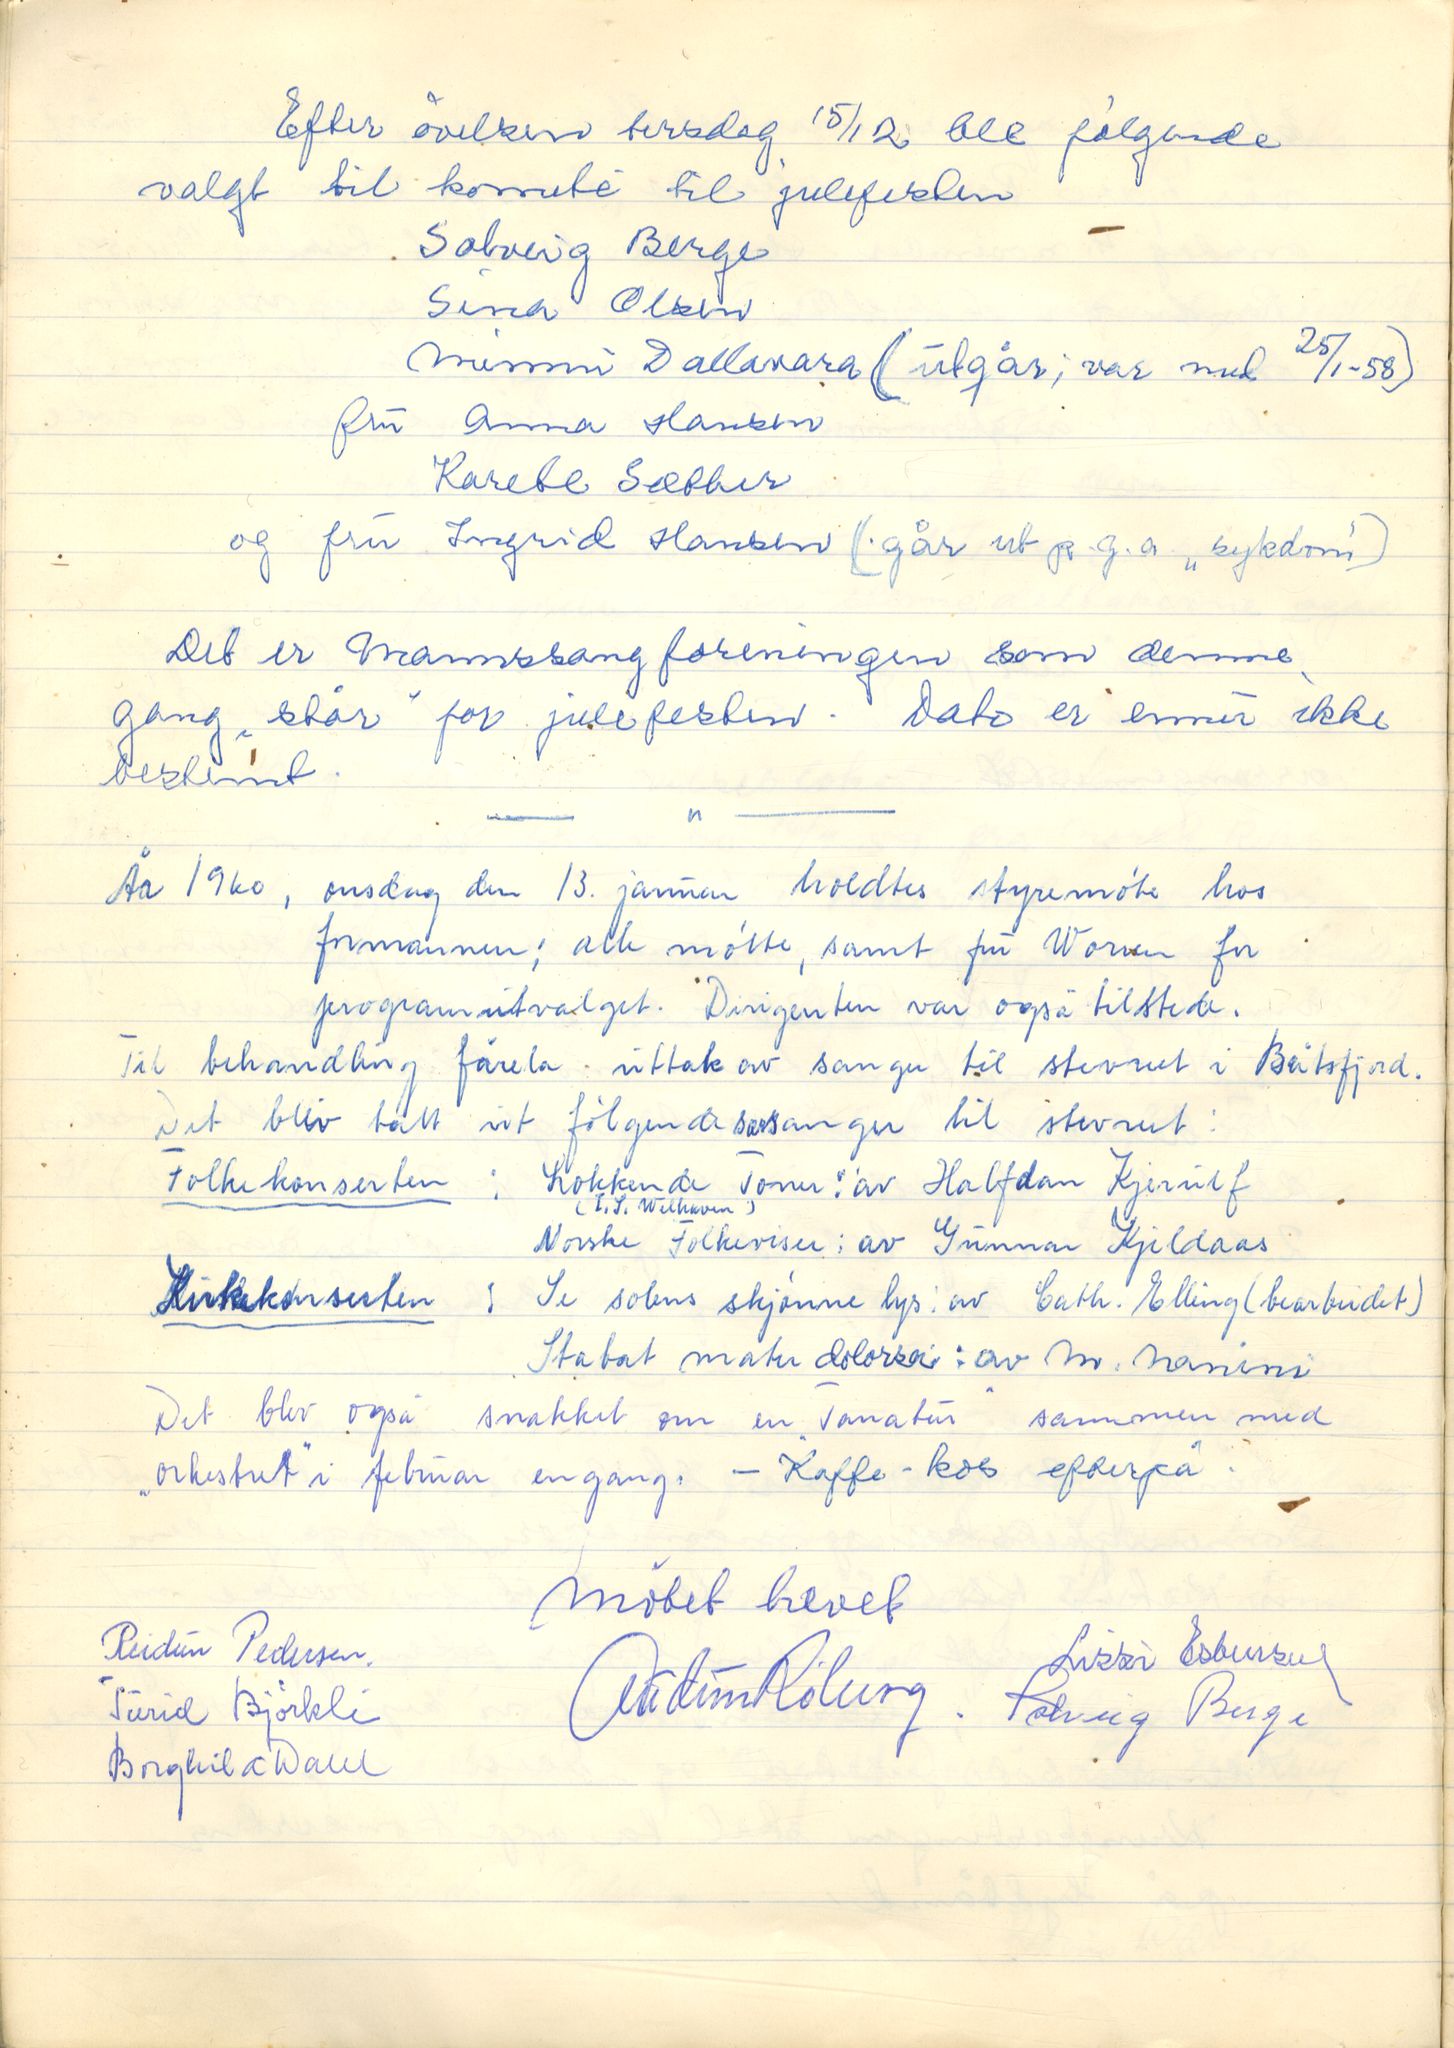 Efter övelsen tirsdag 15/12 ble følgende
valgt til komité til julefesten
Solveig Berge
Sina Olsen
Mimmi Dallavara (utgår; var med 25/1-58)
fru Anna Hansen
Karete Sæther
og fru Ingrid Hansen (går ut p.g.a „sykdom")
Det er Mannssangforeningen som denne
gang „står" for julefesten. Dato er ennu ikke
bestemt.
— " —
År 1960, onsdag den 13. januar holdtes styremöte hos
formannen; alle mötte, samt fru Woren for
programutvalget. Dirigenten var også tilstede.
Til behandling forela uttak av sanger til stevnet i Båtsfjord.
Det blev tatt ut fölgende sanger til stevnet:
Folkekonserten : Lokkende Toner: av Halfdan Kjerulf
(I.S. Welhaven)
Norske Folkeviser: av Gunnar Kjeldaas
Kirkekonserten : Se solens skjønne lys: av Cath. Elling (bearbeidet)
Stabat mater dolorosa: av M. Nanini
Det blev også snakket om en „Tanatur" sammen med
„orkestret" i februar engang. – Kaffe-kos efterpå.
Möbet hevet
Reidun Pedersen.
Turid Björkli
Borghild Dahl
Lizzi Esbensen
Solveig Berge